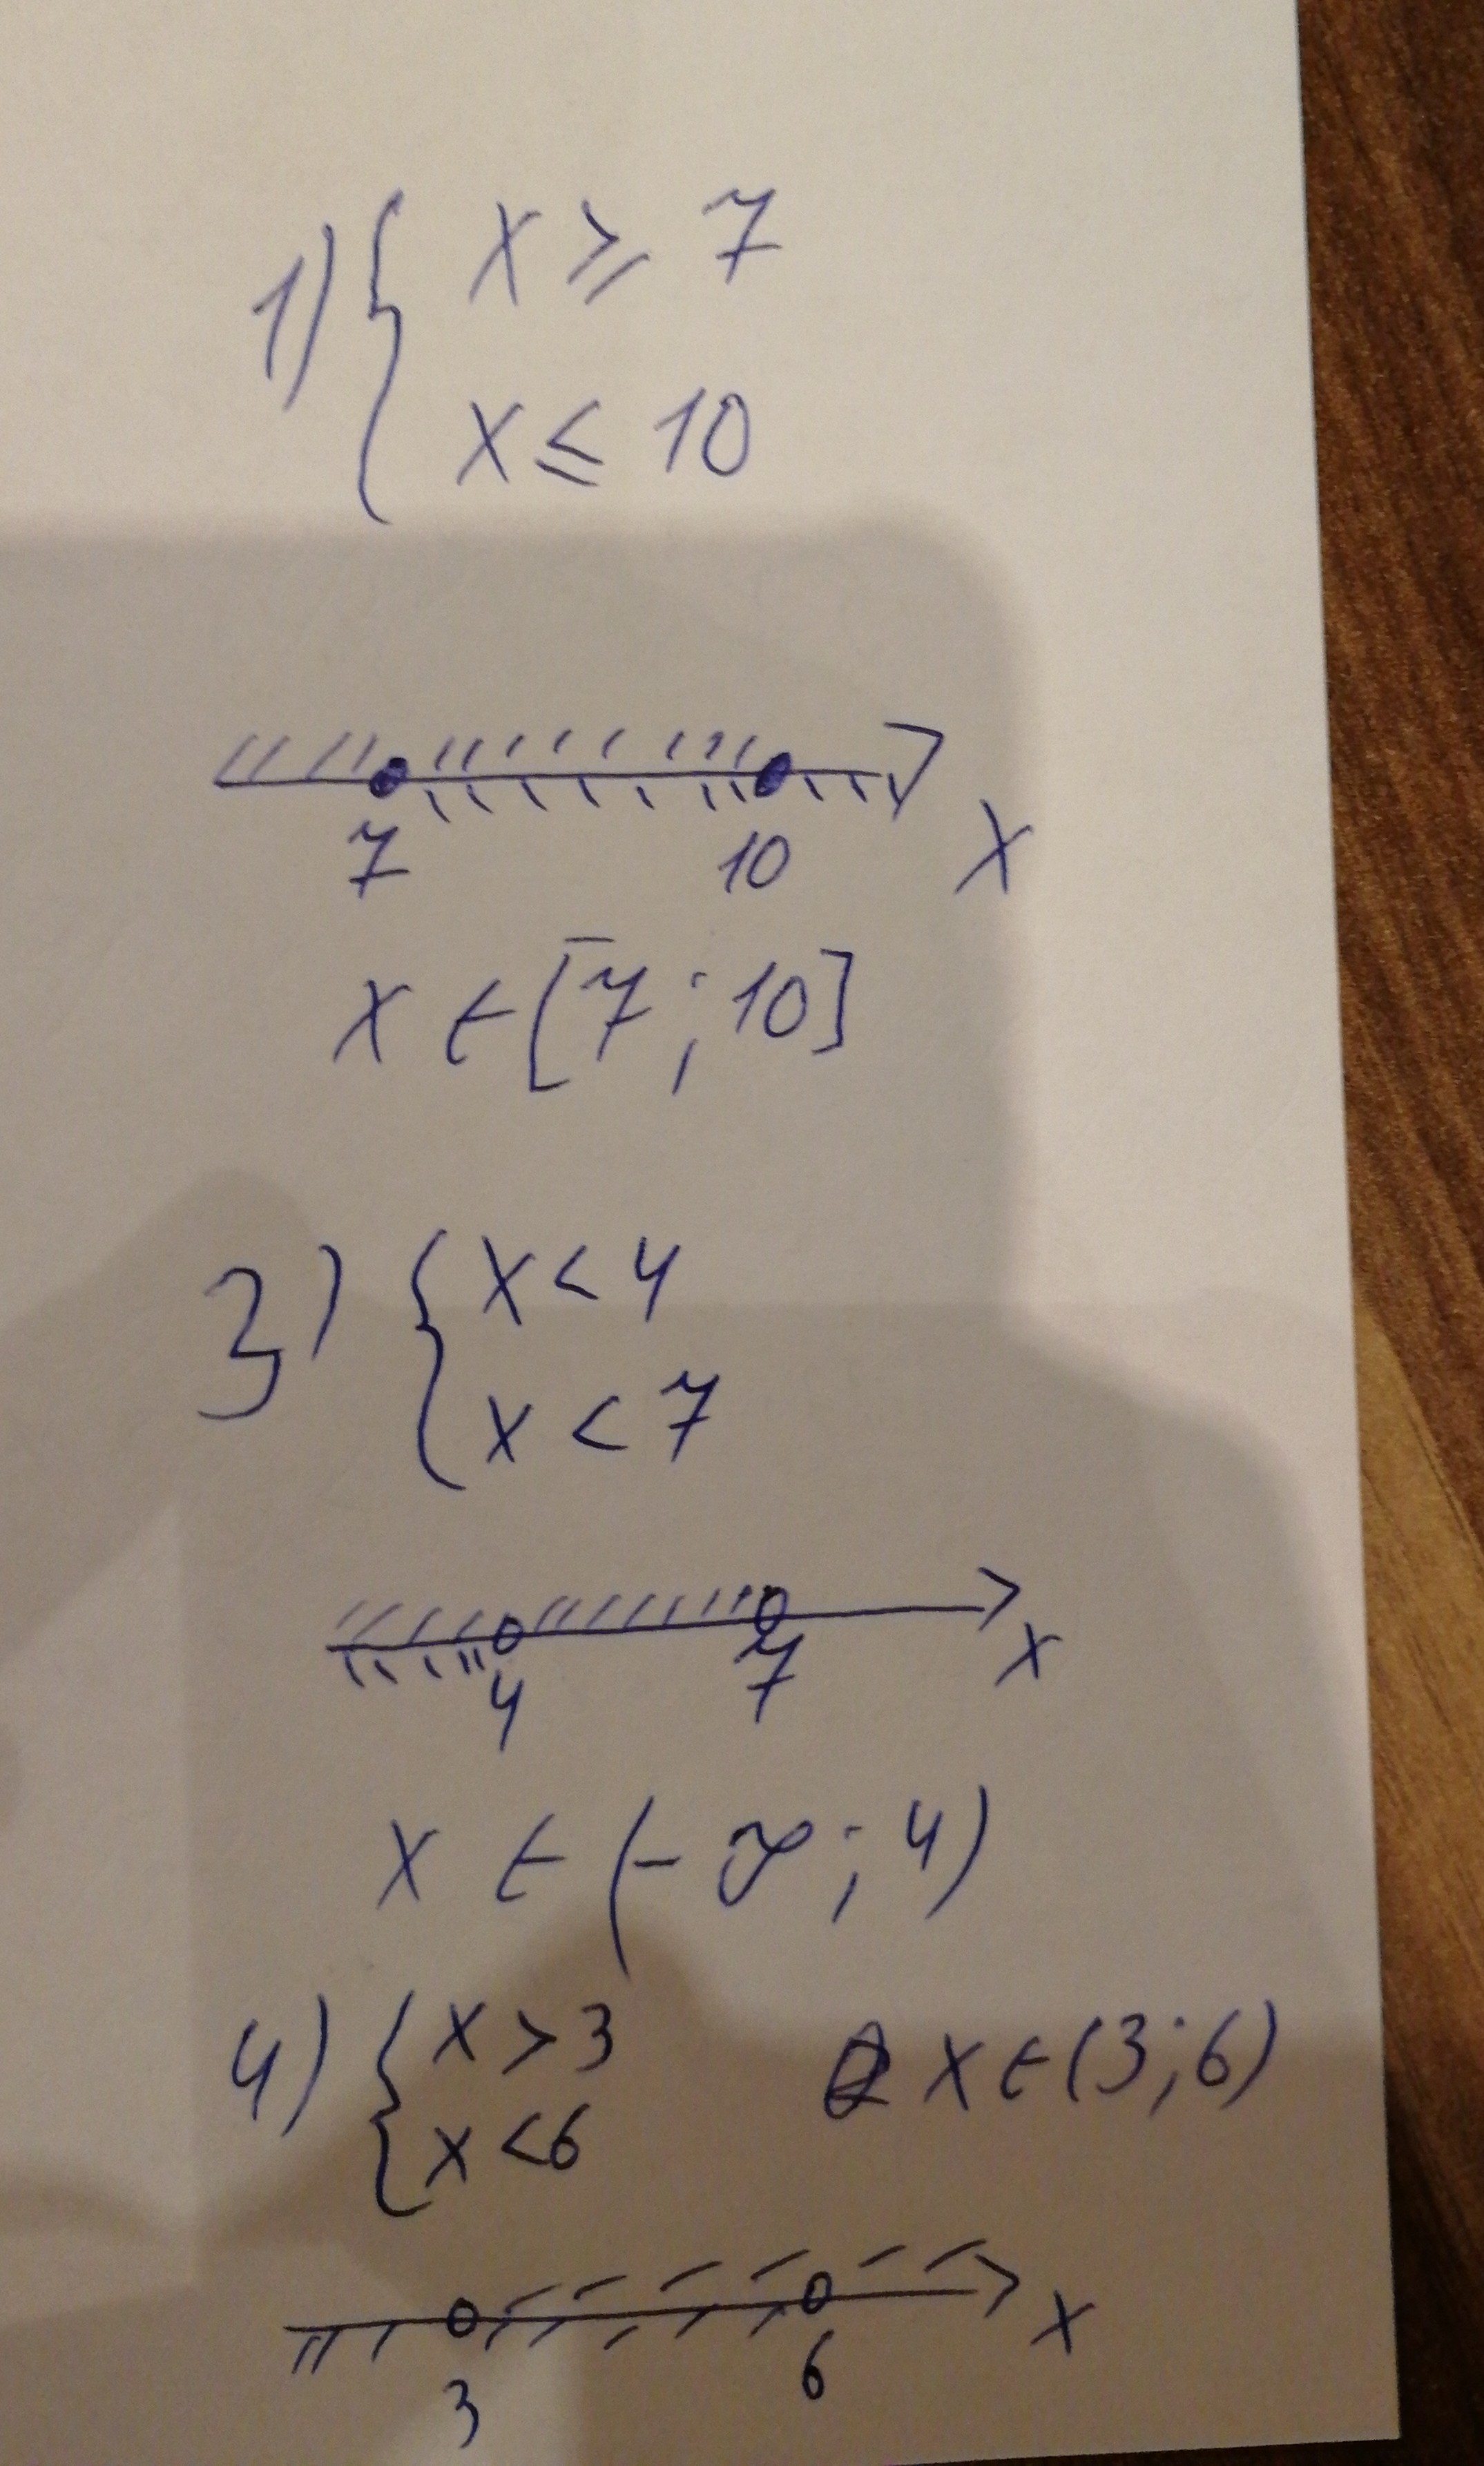 1) { x ⩾ 7
x ≤ 10
7 10 x
x ∈ [7 ; 10]
3) { x < 4
x < 7
4 7 x
x ∈ (- ∞ ; 4)
4) { x > 3 x ∈ (3 ; 6)
x < 6
3 6 x